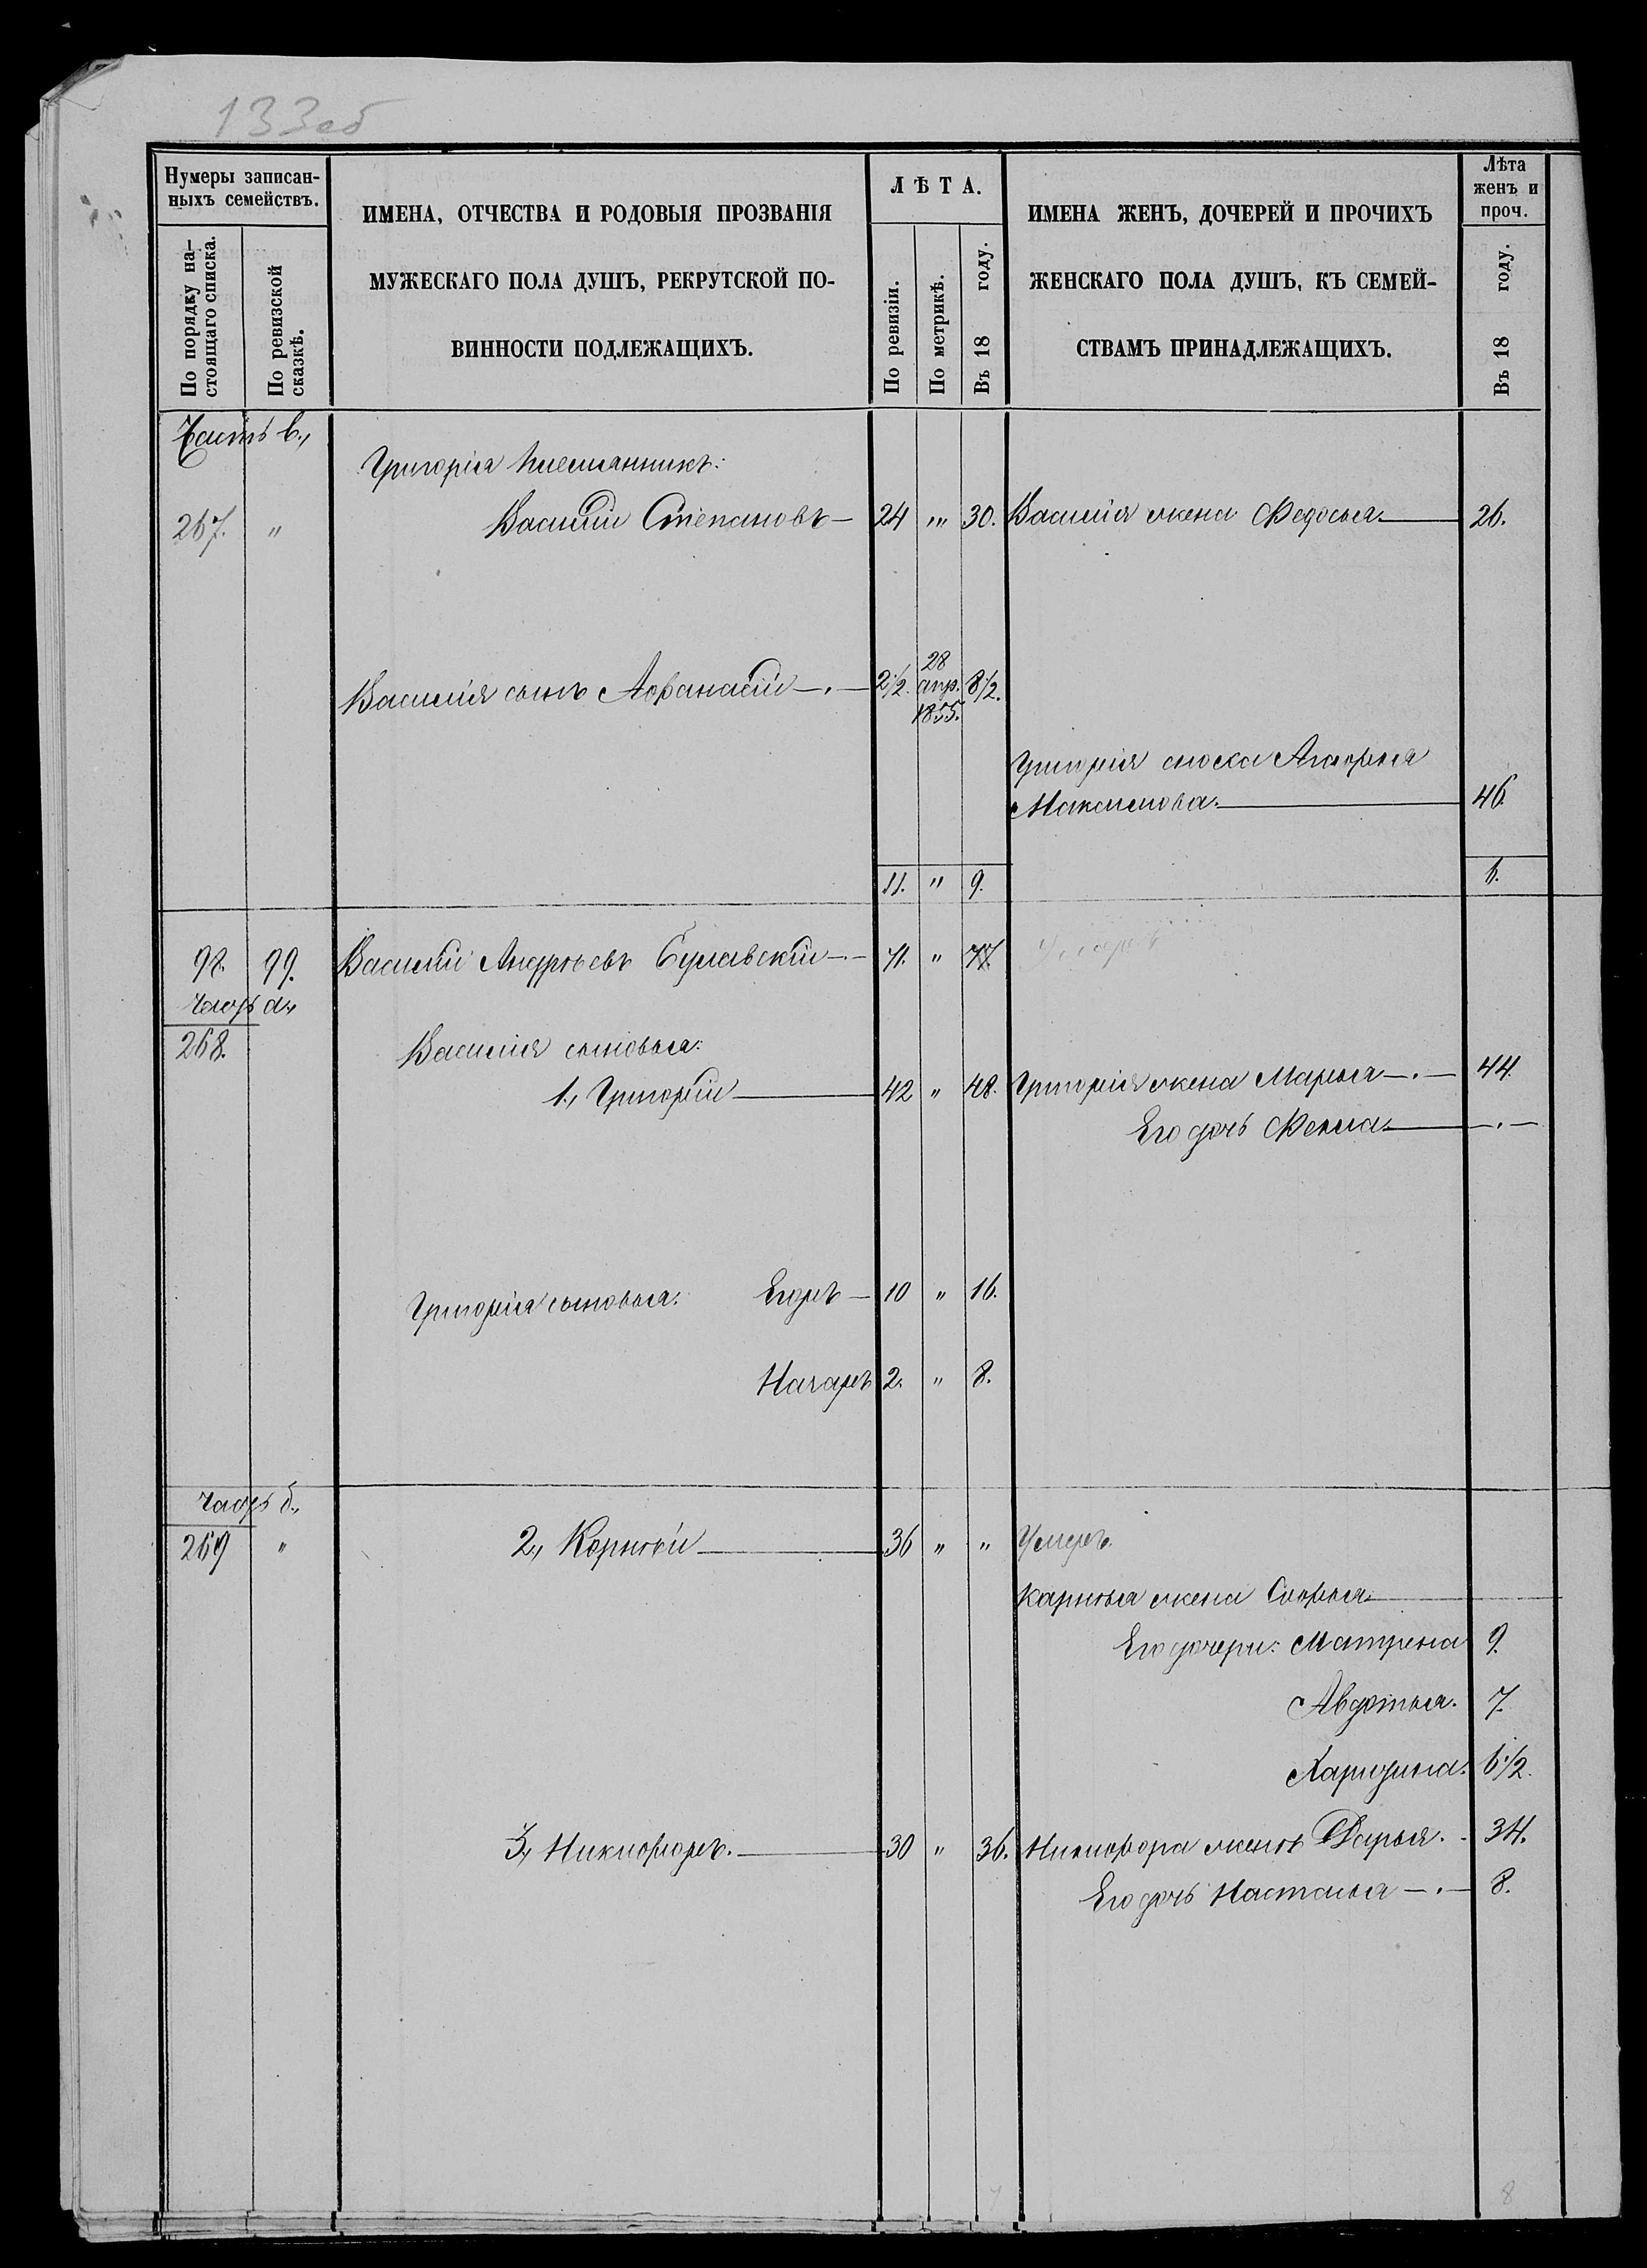 133об
Нумеры записан-
ныхъ семействъ.
По порядку на-
стоящаго списка.
По ревизской
сказкѣ.
ИМЕНА, ОТЧЕСТВА И РОДОВЫЯ ПРОЗВАНІЯ
МУЖЕСКАГО ПОЛА ДУШЪ, РЕКРУТСКОЙ ПО-
ВИННОСТИ ПОДЛЕЖАЩИХЪ.
ЛѢТА.
По ревизіи.
По метрикѣ.
Въ 18 году.
ИМЕНА ЖЕНЪ, ДОЧЕРЕЙ И ПРОЧИХЪ
ЖЕНСКАГО ПОЛА ДУШЪ, КЪ СЕМЕЙ-
СТВАМЪ ПРИНАДЛЕЖАЩИХЪ.
Лѣта
женъ и
проч.
Въ 18 году.
Часть в.,
Григорія племянникъ:
267. " Василій Степановъ — 24 " 30. Василія жена Федосья. — 26.
Василія сынъ Афанасій —.— 2½. 28 апр. 1855. 8½.
Григорія сноха
Максимова. — 46.
11. " 9. 6.
98. 99. Василій Андреевъ Булавскій —.— 71. " 77.
часть а.,
268.
Василія сыновья:
1., Григорій — 42 " 48. Григорія жена Марья —.— 44.
Его дочь Фекла. —.—
Григорія сыновья: Егоръ — 10 " 16.
Назаръ 2. " 8.
часть б.,
269 " 2., Корнѣй — 36 " " Умеръ.
Карнѣя жена Софья. —
Его дочери: Матрена 9.
Авдотья. 7.
Харитина. 6½.
3., Никифоръ. — 30 " 36. Никифора жена Дарья. - 34.
Его дочь Настасья —.— 8.
8